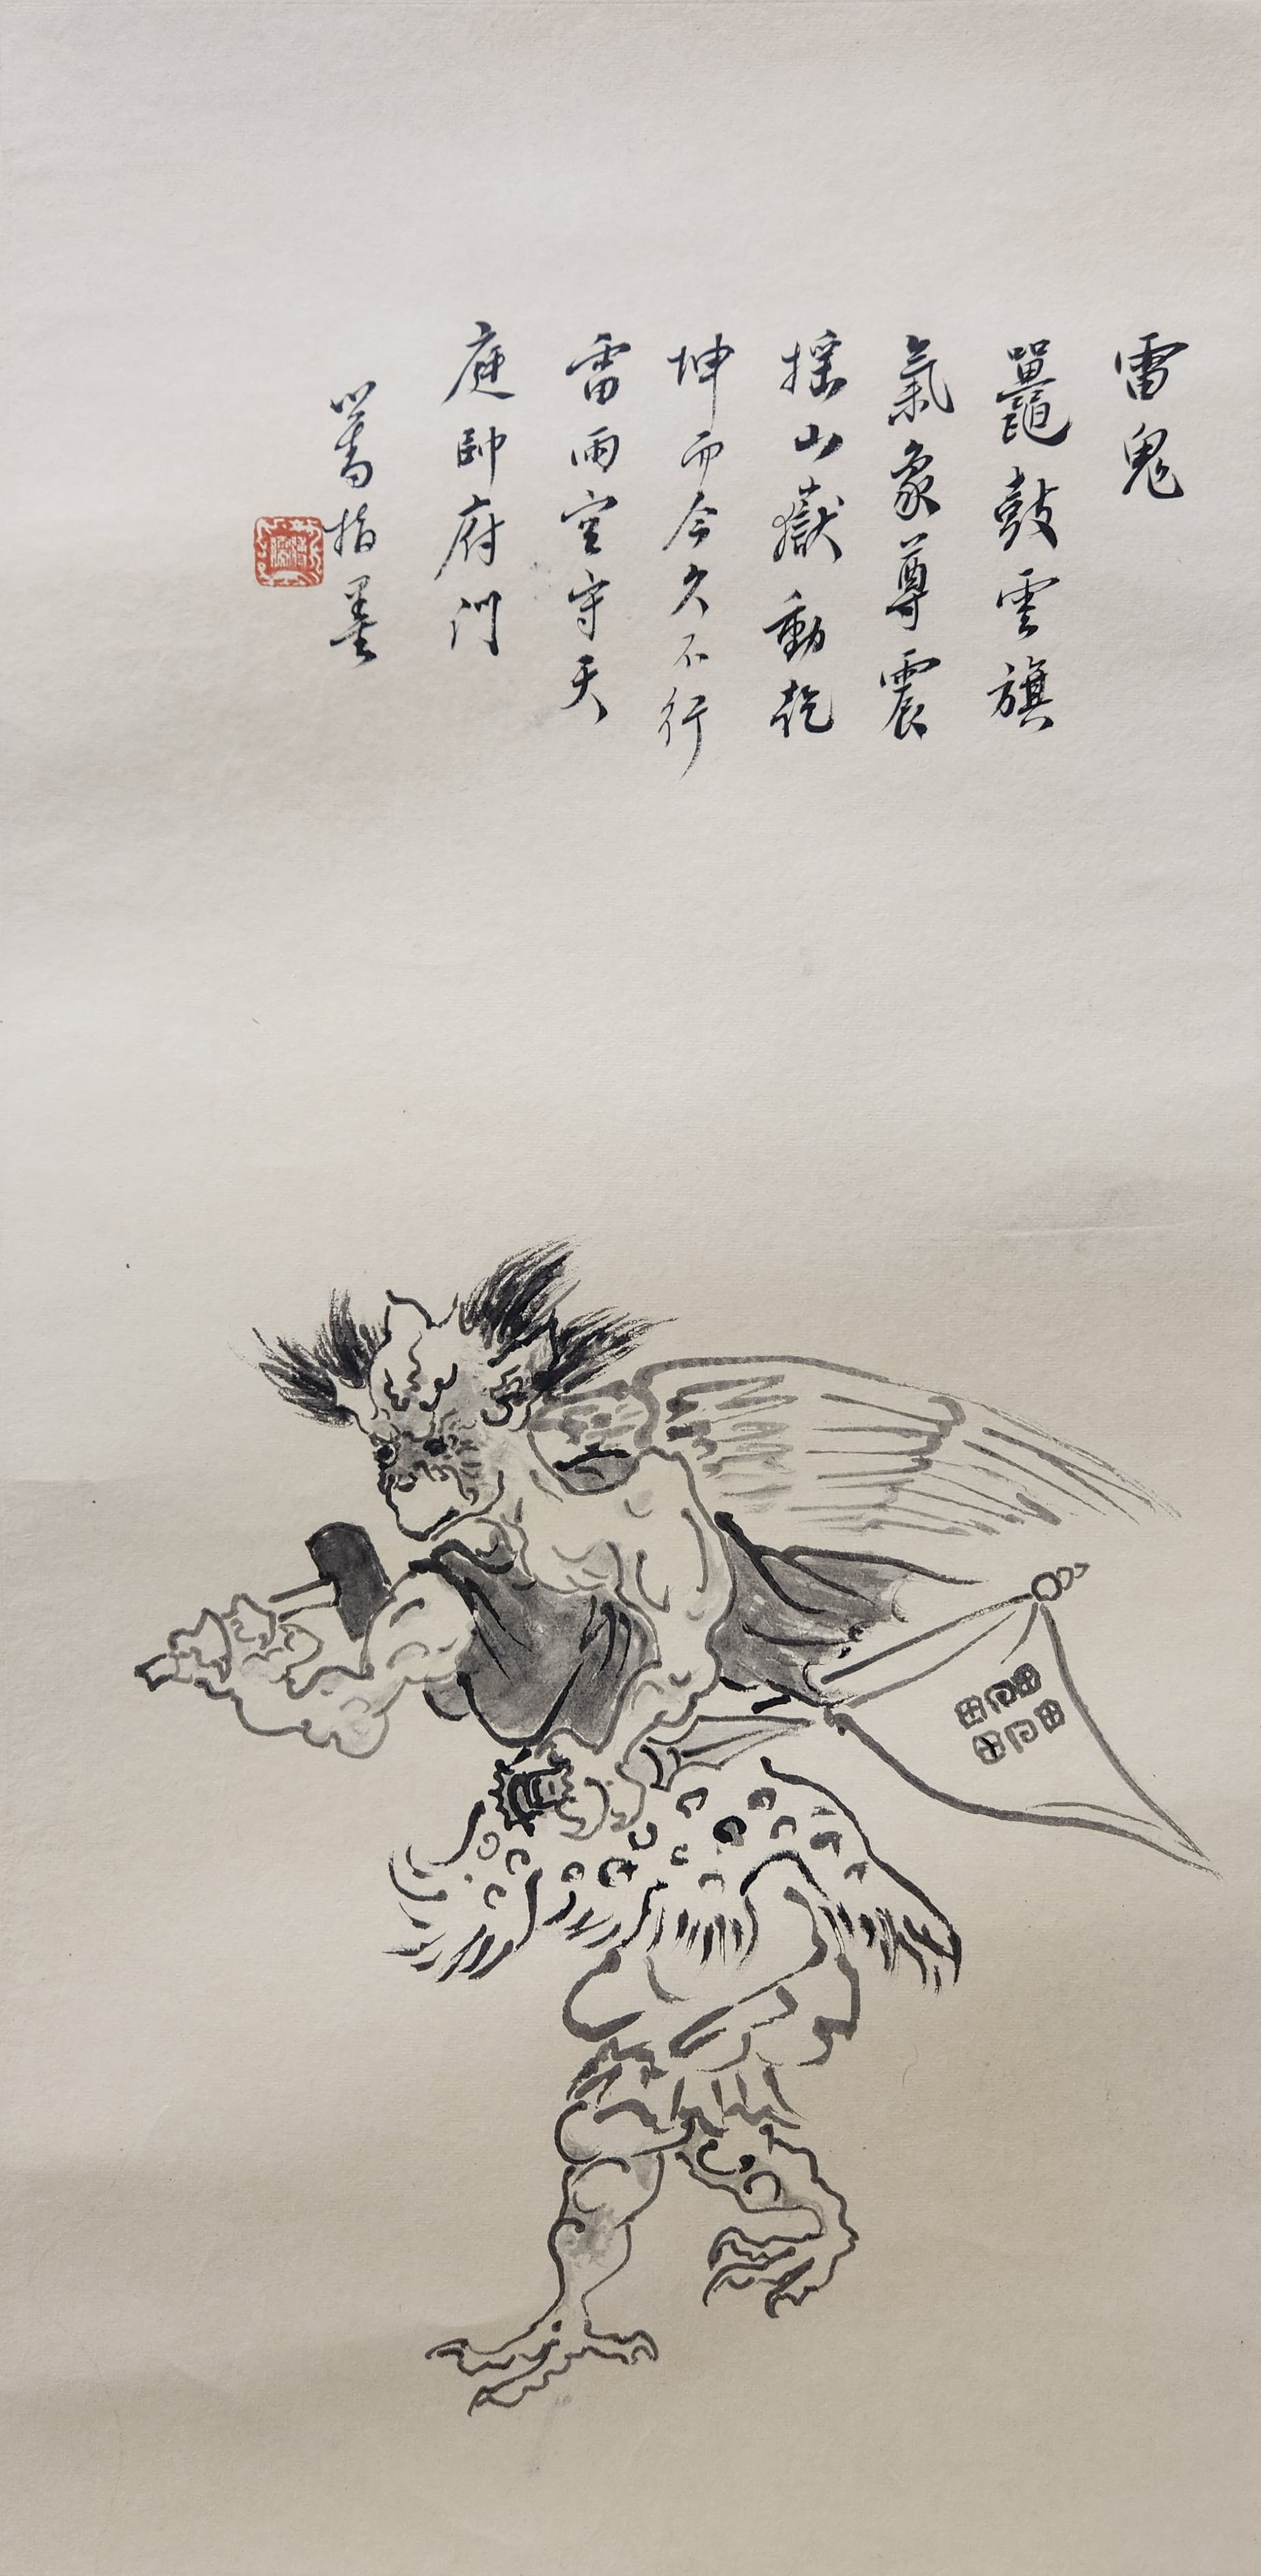 雷鬼
鼉鼓雲旗
氣象尊震
搖山嶽動乾
坤而今久不行
雷雨空守天
庭帥府門
心畬指墨